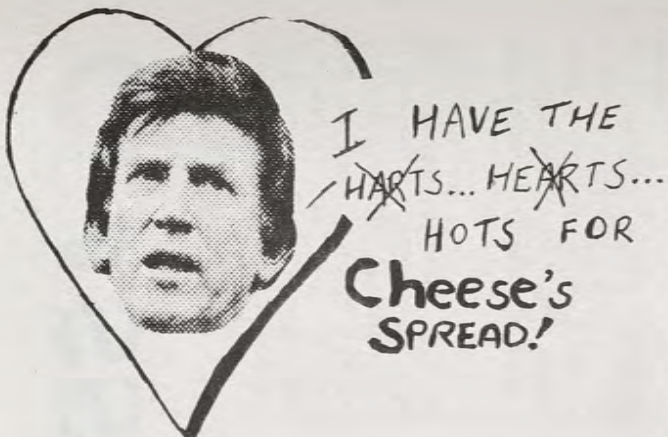 I HAVE THE
HARTS... HEARTS...
HOTS FOR
Cheese's
SPREAD!